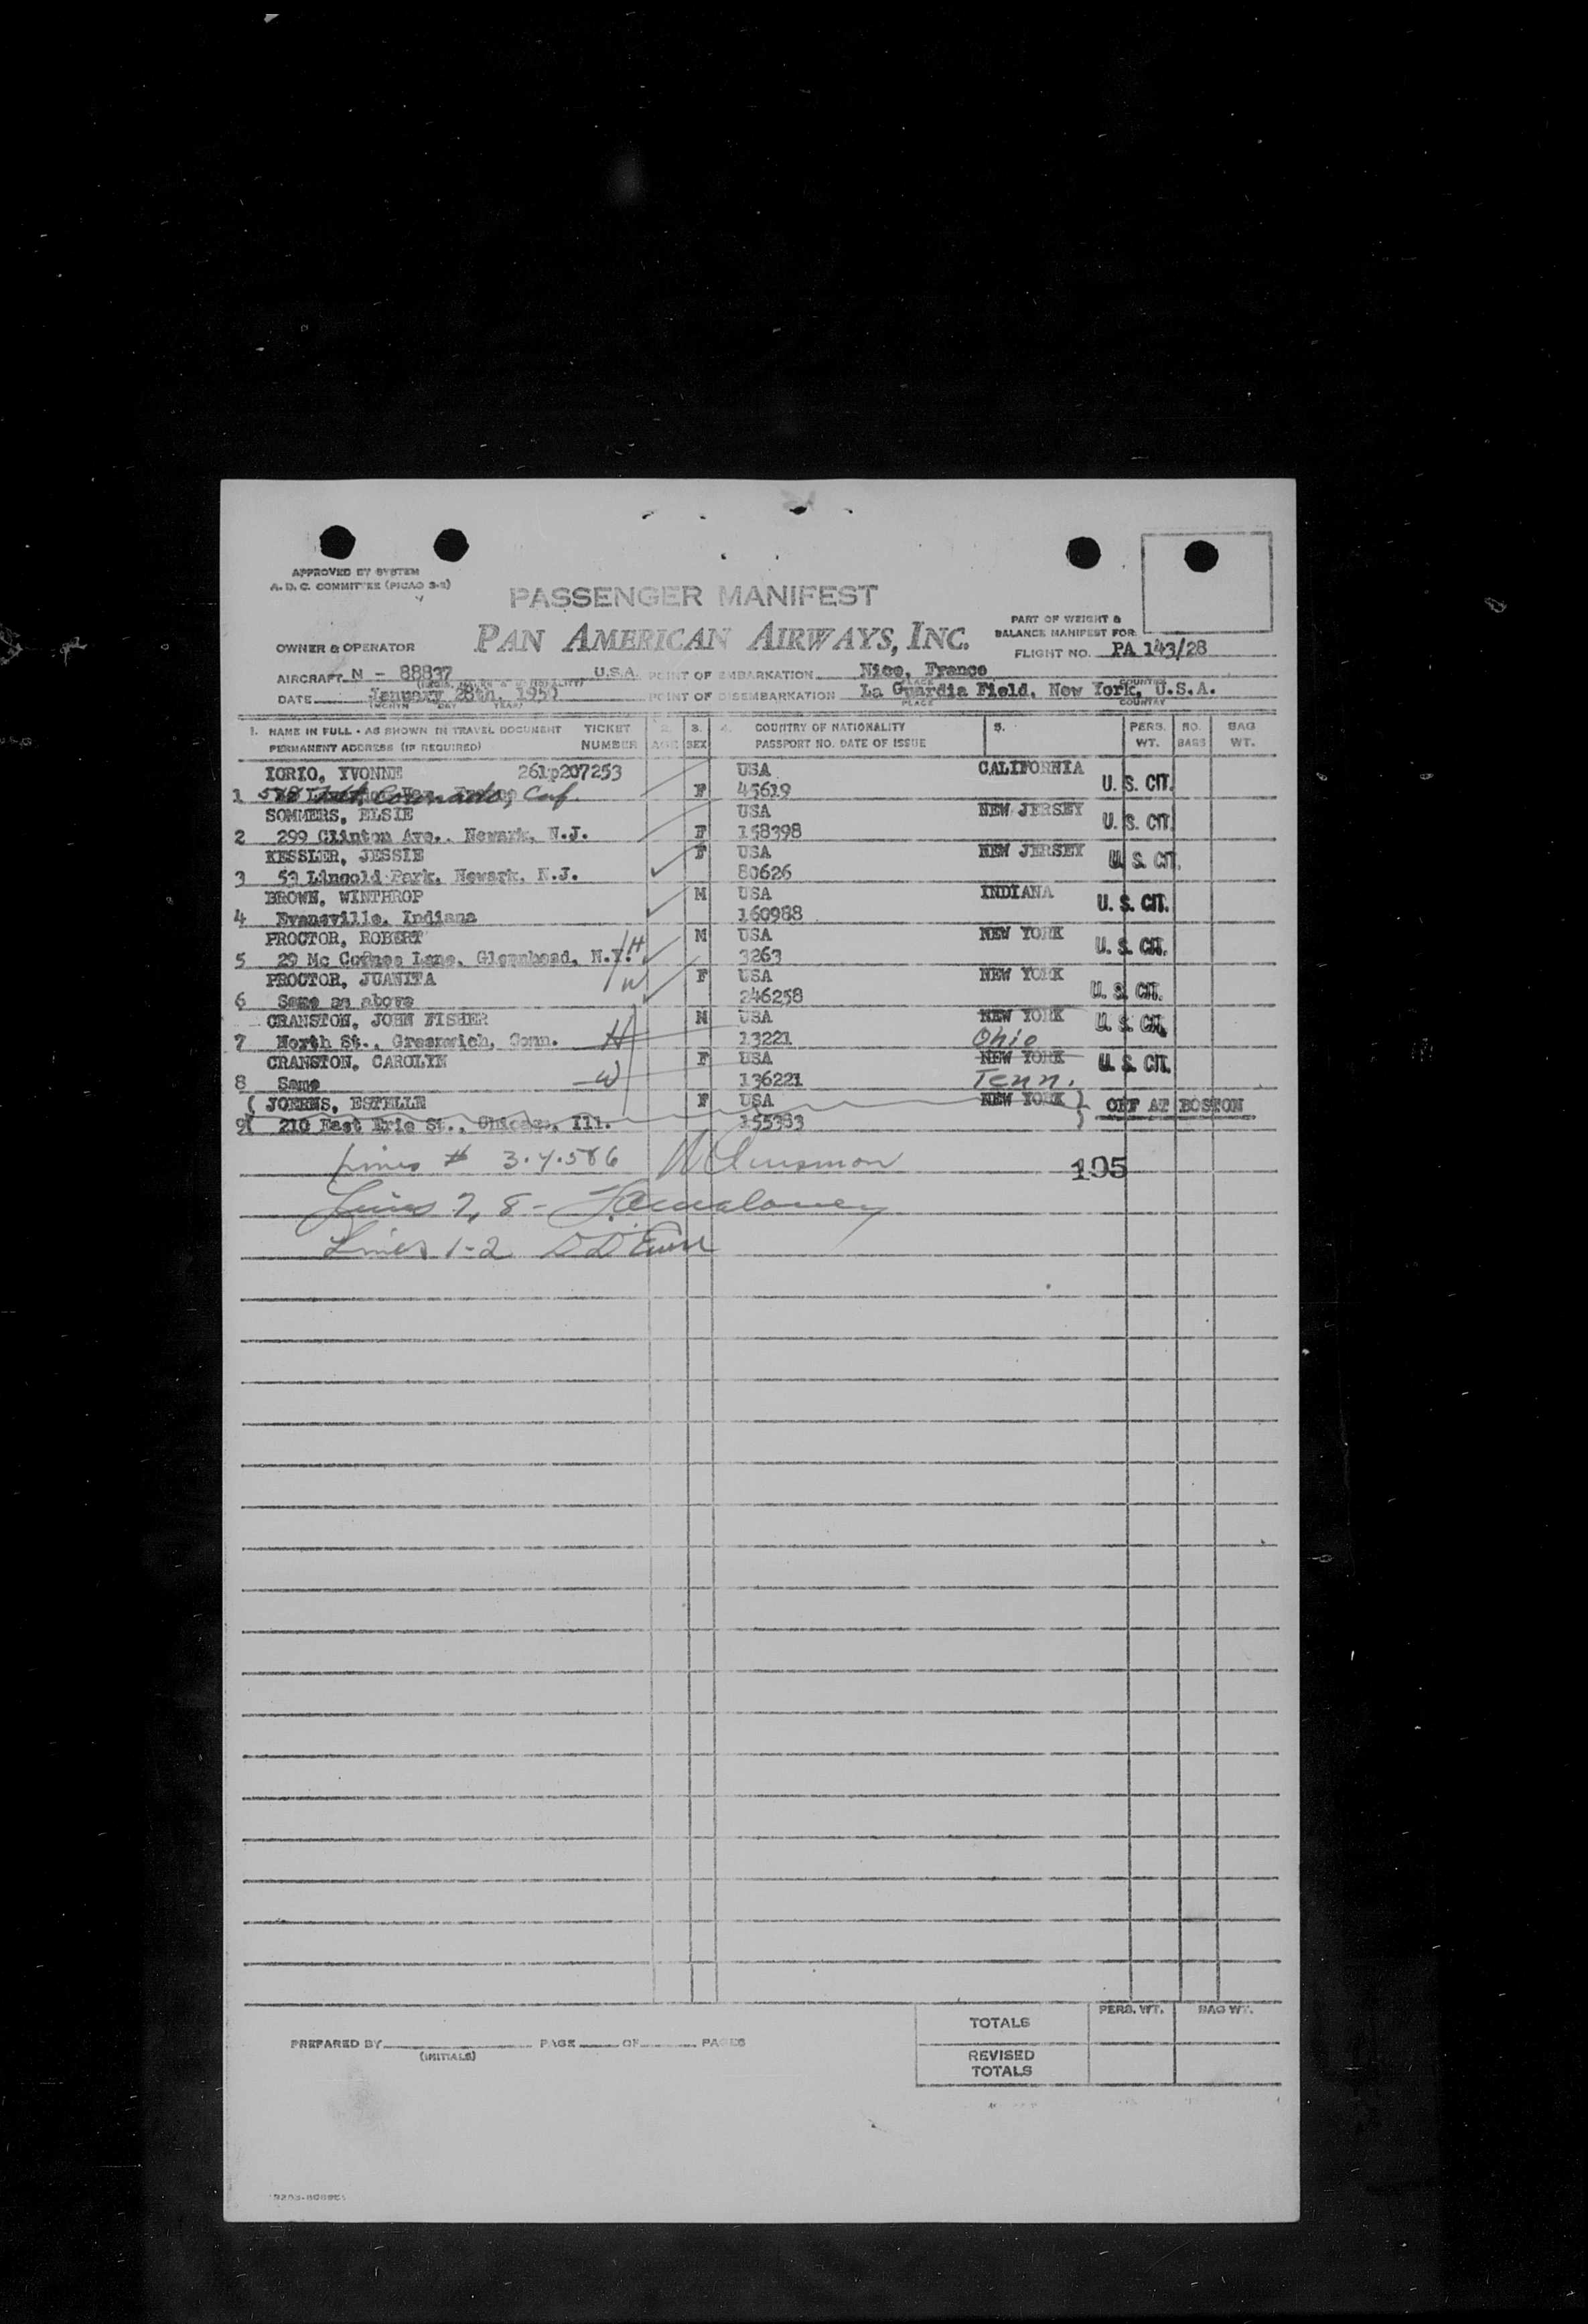 APPROVED BY SYSTEM
A. D. C. COMMITTEE (PICAO 3-2)
PASSENGER MANIFEST
PAN AMERICAN AIRWAYS, INC.
PART OF WEIGHT &
BALANCE MANIFEST FOR:
OWNER & OPERATOR
FLIGHT NO. PA 143/28
AIRCRAFT N - 88837 U.S.A. POINT OF EMBARKATION Nice, France
PLACE COUNTRY
DATE January 28th, 1950 POINT OF DISEMBARKATION La Guardia Field, New York, U.S.A.
(MONTH DAY YEAR) PLACE COUNTRY
1. NAME IN FULL - AS SHOWN IN TRAVEL DOCUMENT TICKET 2. 3. 4. COUNTRY OF NATIONALITY 5. PERS. NO. BAG
PERMANENT ADDRESS (IF REQUIRED) NUMBER AGE SEX PASSPORT NO. DATE OF ISSUE WT. BAGS WT.
IORIO, YVONNE 261p207253 USA CALIFORNIA
1 Coronado, Cal. F 45619 U. S. CIT.
SOMMERS, ELSIE USA NEW JERSEY
2 299 Clinton Ave., Newark, N.J. F 158398 U. S. CIT.
KESSLER, JESSIE F USA NEW JERSEY
3 53 Lincold Park, Newark, N.J. 80626 U. S. CIT.
BROWN, WINTHROP M USA INDIANA
4 Evansville, Indiana 160988 U. S. CIT.
PROCTOR, ROBERT M USA NEW YORK
5 29 Mc Lane, Glennhead, N.Y. H 3263 U. S. CIT.
PROCTOR, JUANITA W F USA NEW YORK
6 Same as above 246258 U. S. CIT.
CRANSTON, JOHN FISHER M USA NEW YORK
7 North St., Greenwich, Conn. H 13221 Ohio U. S. CIT.
CRANSTON, CAROLYN F USA NEW YORK
8 Same W 136221 Tenn. U. S. CIT.
( JOERNS, ESTELLE F USA NEW YORK ) OFF AT BOSTON
9( 210 East Erie St., Chicago, Ill. 155383 )
Lines # 3.4.5 & 6
105
Lines 7, 8 -
Lines 1-2
TOTALS PERS. WT. BAG WT.
PREPARED BY PAGE OF PAGES
(INITIALS)
REVISED
TOTALS